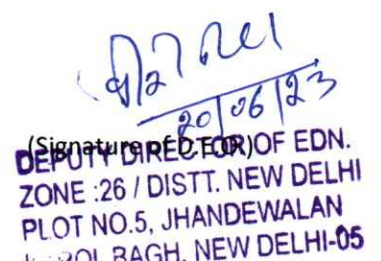 20/06/23
(Signature of D.E.O.R)
DEPUTY DIRECTOR OF EDN.
ZONE :26 / DISTT. NEW DELHI
PLOT NO.5, JHANDEWALAN
BAGH, NEW DELHI-05